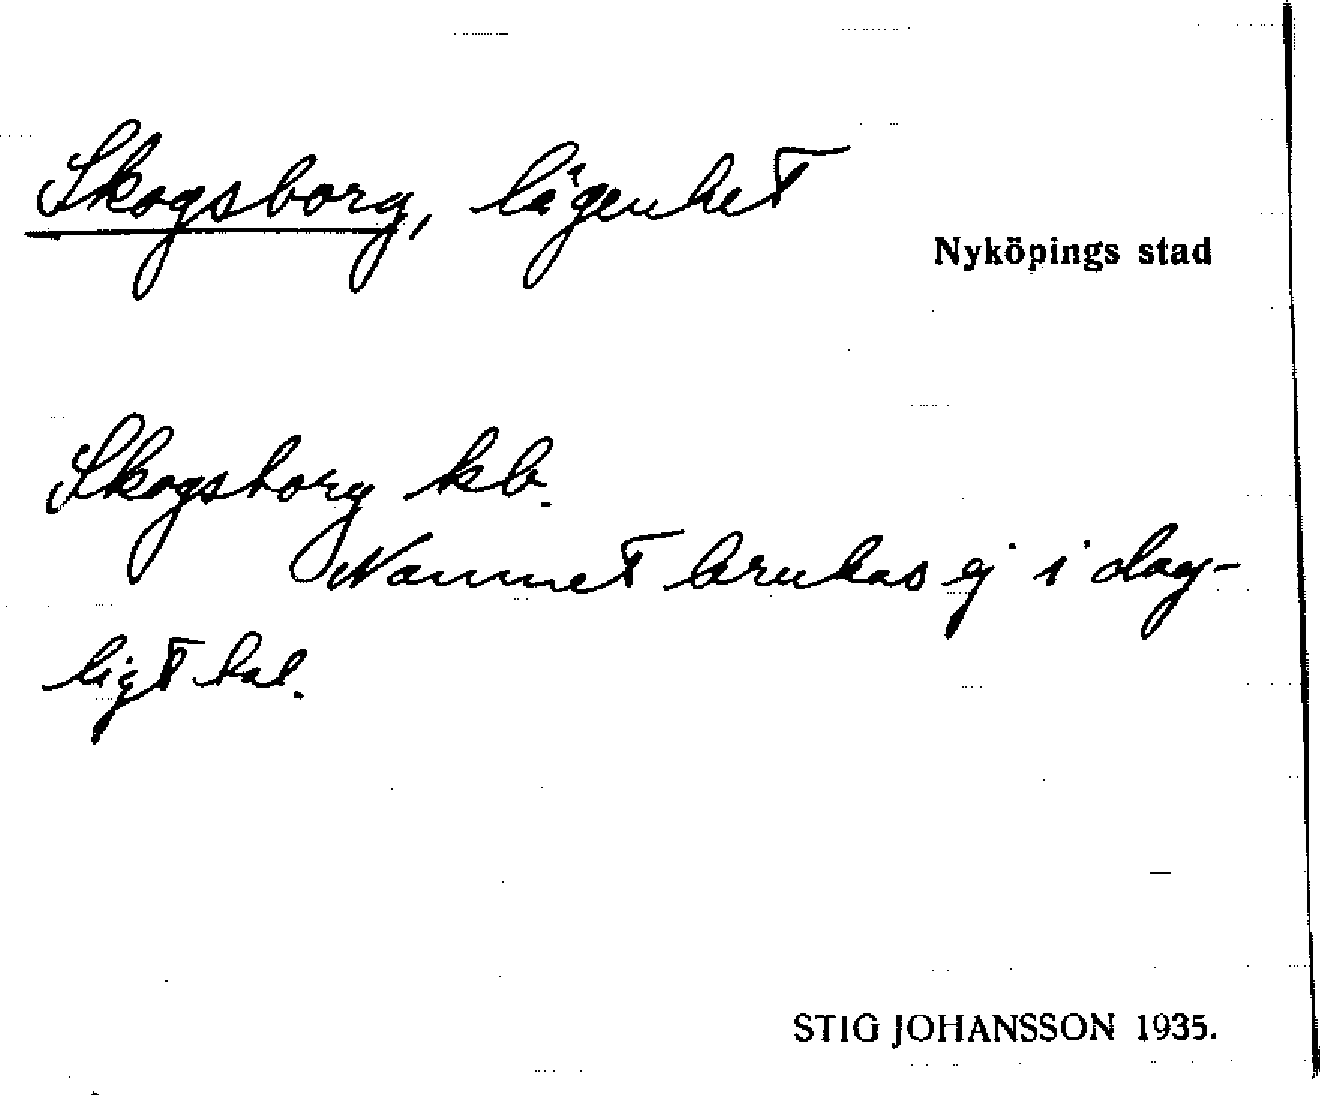 Skogsborg, lägenhet
Nyköpings stad
Skogsborg kb.
Namnet brukas ej i dag-
ligt tal.
STIG JOHANSSON 1935.